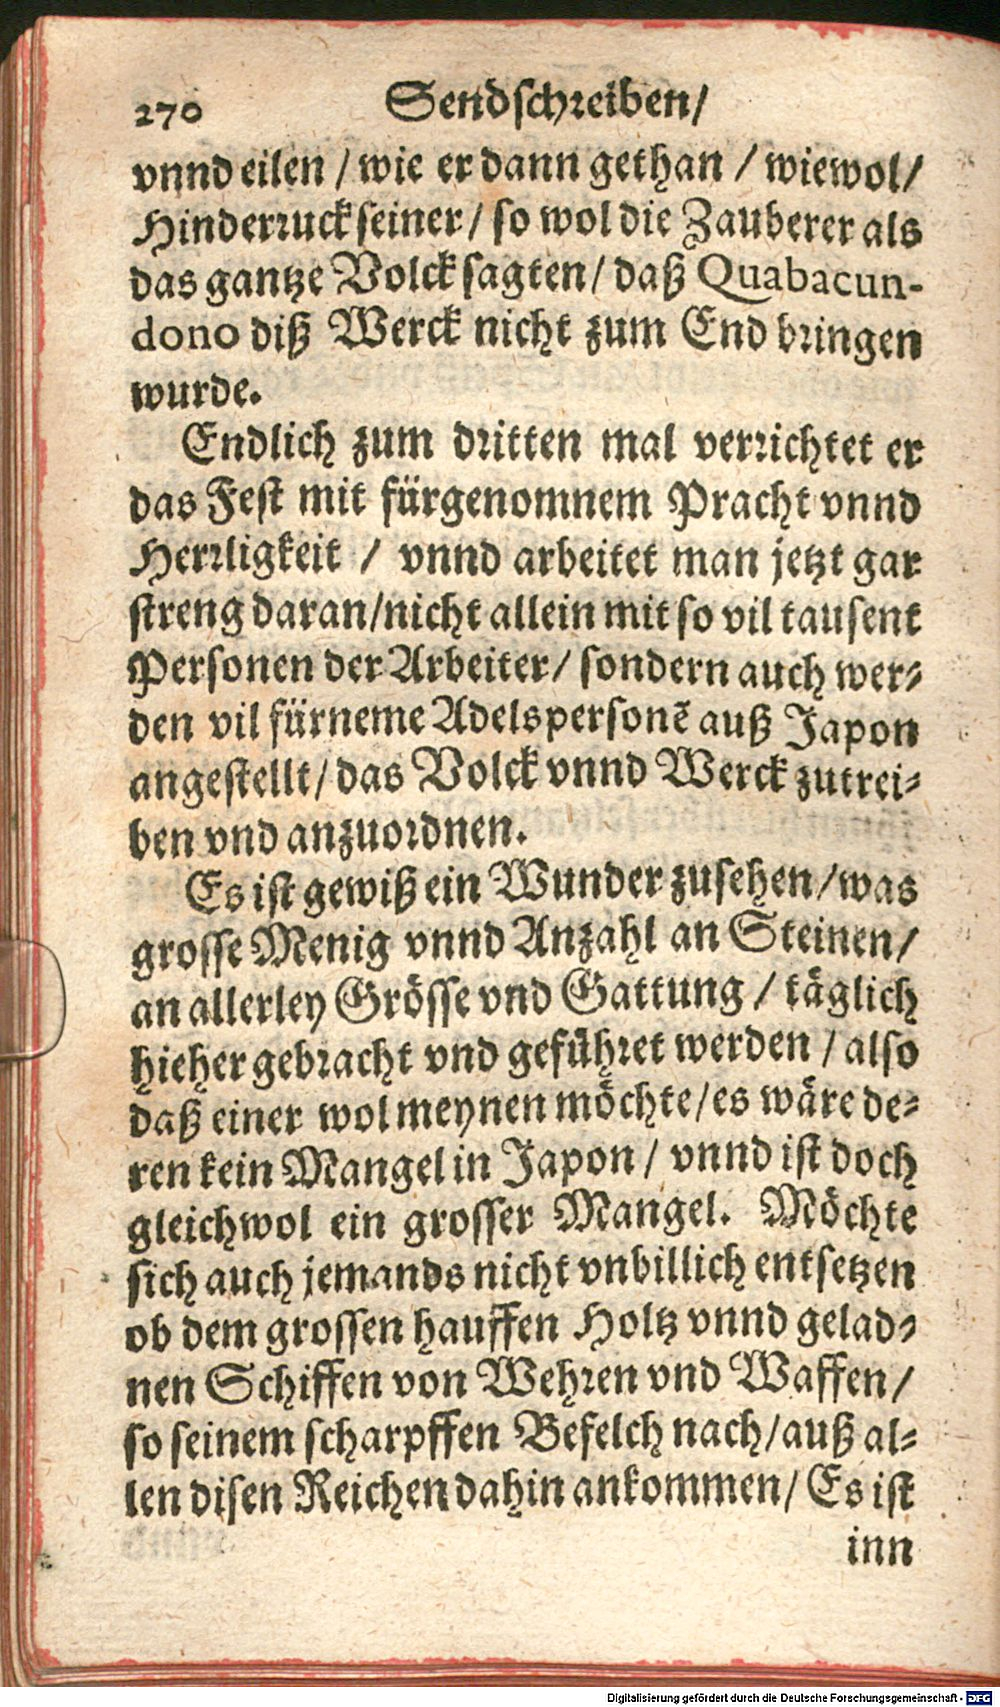 270 Sendschreiben/
vnnd eilen / wie er dann gethan / wiewol/
Hinderruck seiner / so wol die Zauberer als
das gantze Volck sagten / daß Quabacun-
dono diß Werck nicht zum End bringen
wurde.
Endlich zum dritten mal verrichtet er
das Fest mit fürgenomnem Pracht vnnd
Herrligkeit / vnnd arbeitet man jetzt gar
streng daran/nicht allein mit so vil tausent
Personen der Arbeiter/ sondern auch wer-
den vil fürneme Adelspersonẽ auß Japon
angestellt/ das Volck vnnd Werck zutrei-
ben vnd anzuordnen.
Es ist gewiß ein Wunder zusehen/was
grosse Menig vnnd Anzahl an Steinen/
an allerley Grösse vnd Gattung / täglich
hieher gebracht vnd geführet werden / also
daß einer wol meynen möchte/es wäre de-
ren kein Mangel in Japon / vnnd ist doch
gleichwol ein grosser Mangel. Möchte
sich auch jemands nicht vnbillich entsetzen
ob dem grossen hauffen Holtz vnnd gelad-
nen Schiffen von Wehren vnd Waffen/
so seinem scharpffen Befelch nach/auß al-
len disen Reichen dahin ankommen/ Es ist
inn
Digitalisierung gefördert durch die Deutsche Forschungsgemeinschaft - DFG